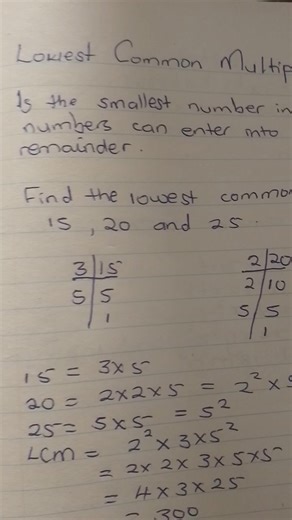 Lowest Common Multip
Is the smallest number in
numbers can enter into
remainder.
Find the lowest common
15, 20 and 25.
3 | 15
5 | 5
1
2 | 20
2 | 10
5 | 5
1
15 = 3x5
20 = 2x2x5 = 2²x5
25 = 5x5 = 5²
LCM = 2² x 3 x 5²
= 2x2x3x5x5
= 4x3x25
= 300